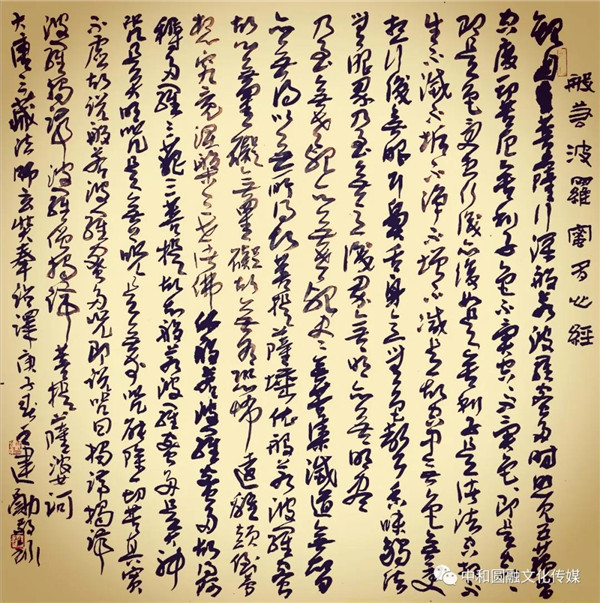 般若波羅蜜多心經
觀自在菩薩行深般若波羅蜜多時照見五蘊皆
空度一切苦厄舍利子色不異空空不異色色即是空空
即是色受想行識亦復如是舍利子是諸法空相不
生不滅不垢不淨不增不減是故空中無色無受
想行識無眼耳鼻舌身意無色聲香味觸法
無眼界乃至無意識界無無明亦無無明盡
乃至無老死亦無老死盡無苦集滅道無智
亦無得以無所得故菩提薩埵依般若波羅蜜多
故心無罣礙無罣礙故無有恐怖遠離顛倒夢
想究竟涅槃三世諸佛依般若波羅蜜多故得阿
耨多羅三藐三菩提故知般若波羅蜜多是大神
咒是大明咒是無上咒是無等等咒能除一切苦真實
不虛故說般若波羅蜜多咒即說咒曰揭諦揭諦
波羅揭諦波羅僧揭諦菩提薩婆訶
大唐三藏法師玄奘奉詔譯庚子春建勳敬
中和圆融文化传媒